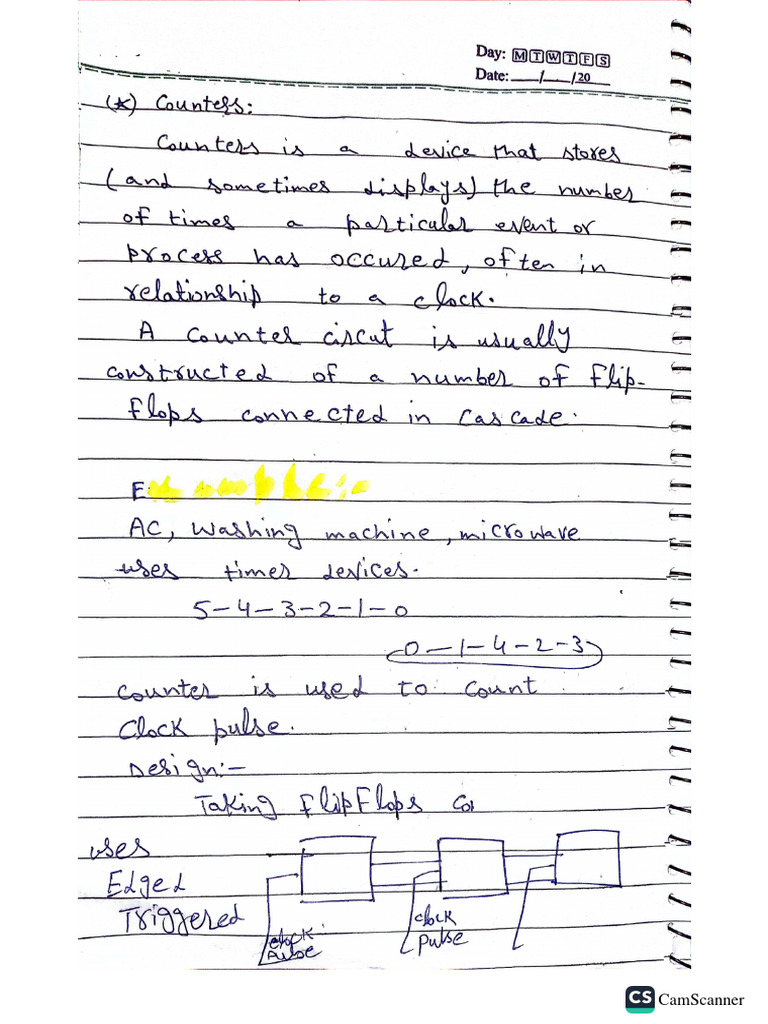 Day: M T W T F S
Date: __/__/20__
(*) Counters:
Counters is a device that stores
(and sometimes displays) the number
of times a particular event or
process has occured, often in
relationship to a clock.
A counter circut is usually
constructed of a number of flip-
flops connected in cascade.
Example:-
AC, washing machine, microwave
uses timer devices.
5-4-3-2-1-0
0-1-4-2-3
counter is used to count
Clock pulse.
Design:-
Taking FlipFlops Co
uses
Edged
Triggered
clock
pulse
clock
pulse
CS CamScanner